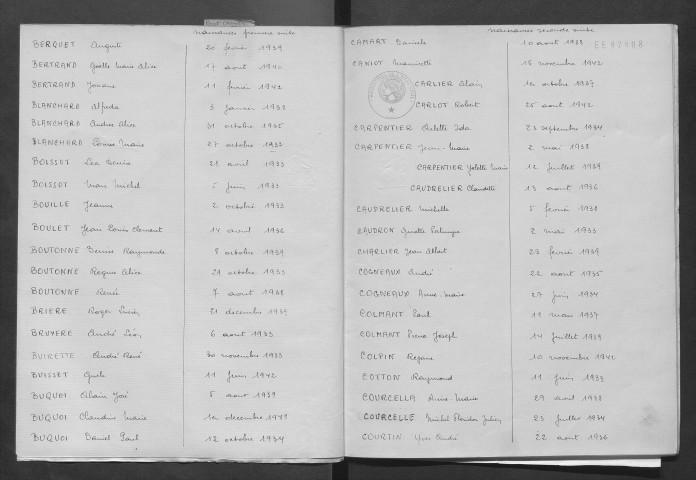 naissances première suite
BERQUET Auguste 20 février 1939
BERTRAND Gaëlle Marie Alice 17 aout 1940
BERTRAND Josiane 11 février 1942
BLANCHARD Alfreda 3 janvier 1938
BLANCHARD Andrée Alice 31 octobre 1935
BLANCHARD Louise Marie 27 octobre 1933
BOISSET Lea Denise 28 avril 1933
BOISSET Marc Michel 5 juin 1933
BOUILLE Jeanne 2 octobre 1933
BOULET Jean Louis Clement 14 avril 1936
BOUTONNE Denise Raymonde 8 octobre 1939
BOUTONNE Regine Alice 21 octobre 1933
BOUTONNE Renée 7 aout 1938
BRIERE Roger Lucien 21 decembre 1939
BRUYERE André Léon 6 aout 1933
BUIRETTE André René 30 novembre 1933
BUISSET 11 juin 1942
BUQUOI Alain José 5 aout 1939
BUQUOI Claudine Marie 1er decembre 1941
BUQUOI Daniel Paul 12 octobre 1934
naissances seconde suite
CAMART Daniele 10 aout 1938
CANIOT Mauricette 18 novembre 1942
CARLIER Alain 1er octobre 1937
CARLOT Robert 25 aout 1942
CARPENTIER Arlette Ida 23 septembre 1934
CARPENTIER Jean-Marie 2 mai 1938
CARPENTIER Yolette Marie 12 juillet 1939
CAUDRELIER Claudette 13 aout 1936
CAUDRELIER Michelle 5 février 1938
CAUDRON Ginette 2 mai 1933
CHARLIER Jean Albert 23 février 1939
COGNEAUX André 22 aout 1935
COGNEAUX Anne-Marie 27 juin 1934
COLMANT Paul 11 mai 1937
COLMANT Pierre Joseph 14 juillet 1939
COLPIN Regane 10 novembre 1942
COTTON Raymond 11 juin 1933
COURCELLA Anne-Marie 29 avril 1938
COURCELLE Michel Floridor Julien 23 juillet 1934
COURTIN Yves André 22 aout 1936